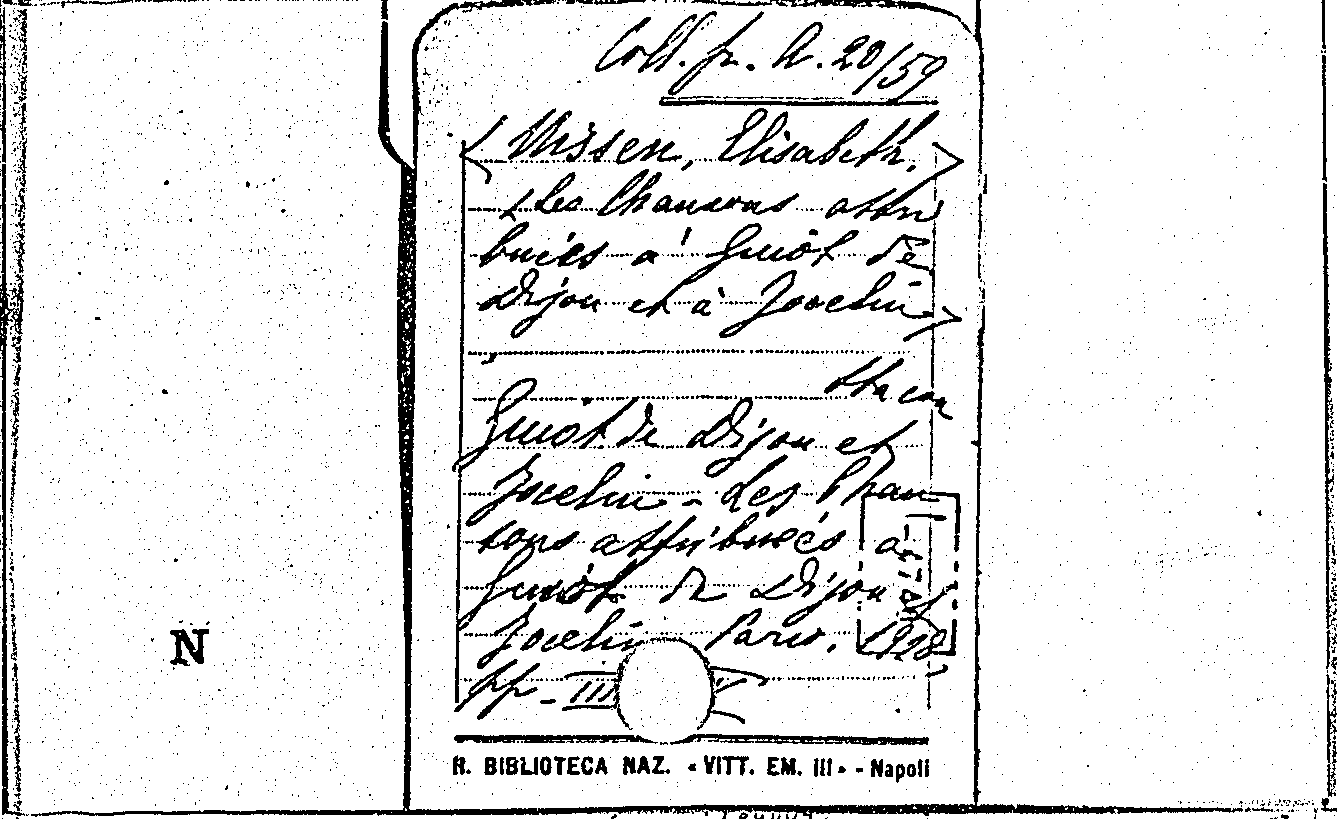 Coll. fr. A. 20/59
< Nissen, Elisabeth. >
< Les Chansons attri
buées à Guiot de
Dijon et à Jocelin >
Guiot de Dijon et
Jocelin - Les Chan
sons attribuées à
Guiot de Dijon et
Jocelin Paris. 1928,
pp - III
N
R. BIBLIOTECA NAZ. « VITT. EM. III » - Napoli